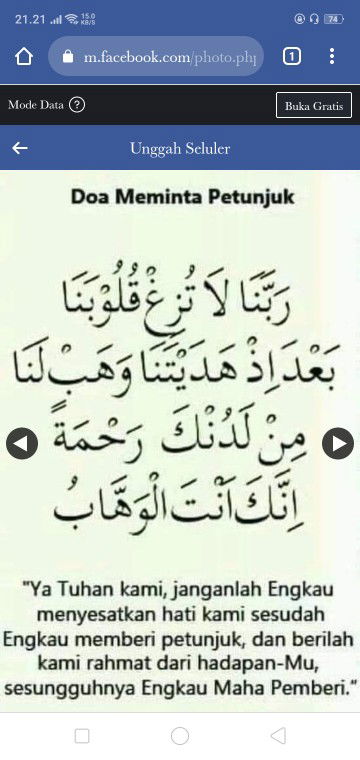 21.21 15.0 KB/S 74
m.facebook.com/photo.php 1
Mode Data ? Buka Gratis
Unggah Seluler
Doa Meminta Petunjuk
رَبَّنَا لَا تُزِغْ قُلُوْبَنَا
بَعْدَ اِذْ هَدَيْتَنَا وَهَبْ لَنَا
مِنْ لَدُنْكَ رَحْمَةً
اِنَّكَ اَنْتَ الْوَهَّابُ
"Ya Tuhan kami, janganlah Engkau
menyesatkan hati kami sesudah
Engkau memberi petunjuk, dan berilah
kami rahmat dari hadapan-Mu,
sesungguhnya Engkau Maha Pemberi."